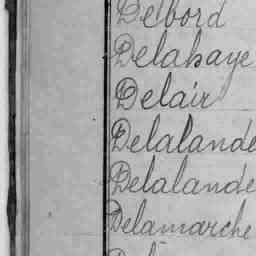 Debord
Delahaye
Delair
Delalande
Delalande
Delamarche